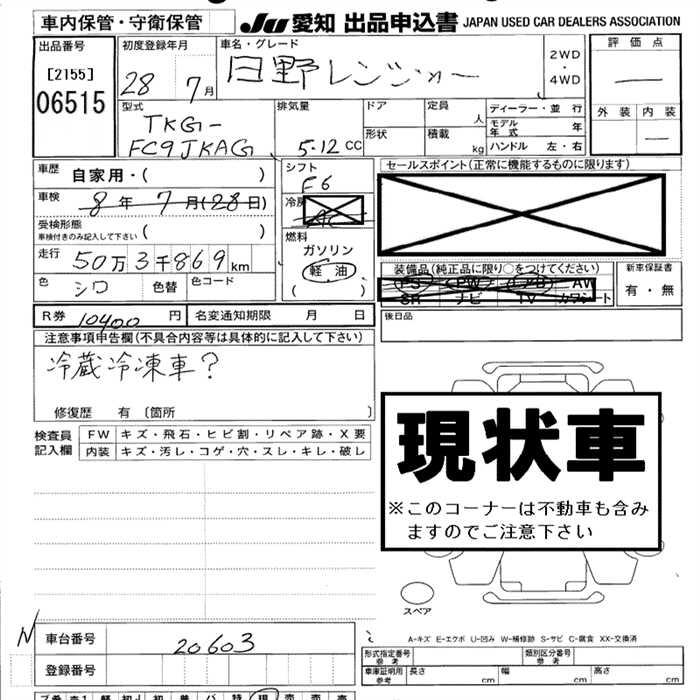 車内保管・守衛保管
JU 愛知 出品申込書 JAPAN USED CAR DEALERS ASSOCIATION
出品番号
[2155]
06515
初度登録年月
28 7月
車名・グレード
日野レンジャー
2WD
・
4WD
評価点
外装 内装
型式
TKG-
FC9JKAG
排気量
5.12 CC
ドア
形状
定員 人
積載 kg
ディーラー・並行
モデル年式 年
ハンドル 左・右
車歴 自家用・( )
車検 8年 7月(28日)
受検形態
車検付きのみ記入して下さい ( )
走行 50万3千869km
色 シロ 色替 色コード
シフト
F6
冷房
AC
燃料
ガソリン
軽油
( )
セールスポイント(正常に機能するものに限ります)
装備品(純正品に限り○をつけてください)
PS PW AB AW
SR ナビ TV カワシート
新車保証書
有・無
後日品
R券 10400 円 名変通知期限 月 日
注意事項申告欄(不具合内容等は具体的に記入して下さい)
冷蔵冷凍車?
修復歴 有 〔箇所 〕
検査員
記入欄
FW キズ・飛石・ヒビ割・リペア跡・X要
内装 キズ・汚レ・コゲ・穴・スレ・キレ・破レ
現状車
※このコーナーは不動車も含み
ますのでご注意下さい
スペア
A-キズ E-エクボ U-凹み W-補修跡 S-サビ C-腐食 XX-交換済
N
車台番号 20603
登録番号
形式指定番号
参考
類別区分番号
参考
車庫証明用
参考
長さ cm 幅 cm 高さ cm